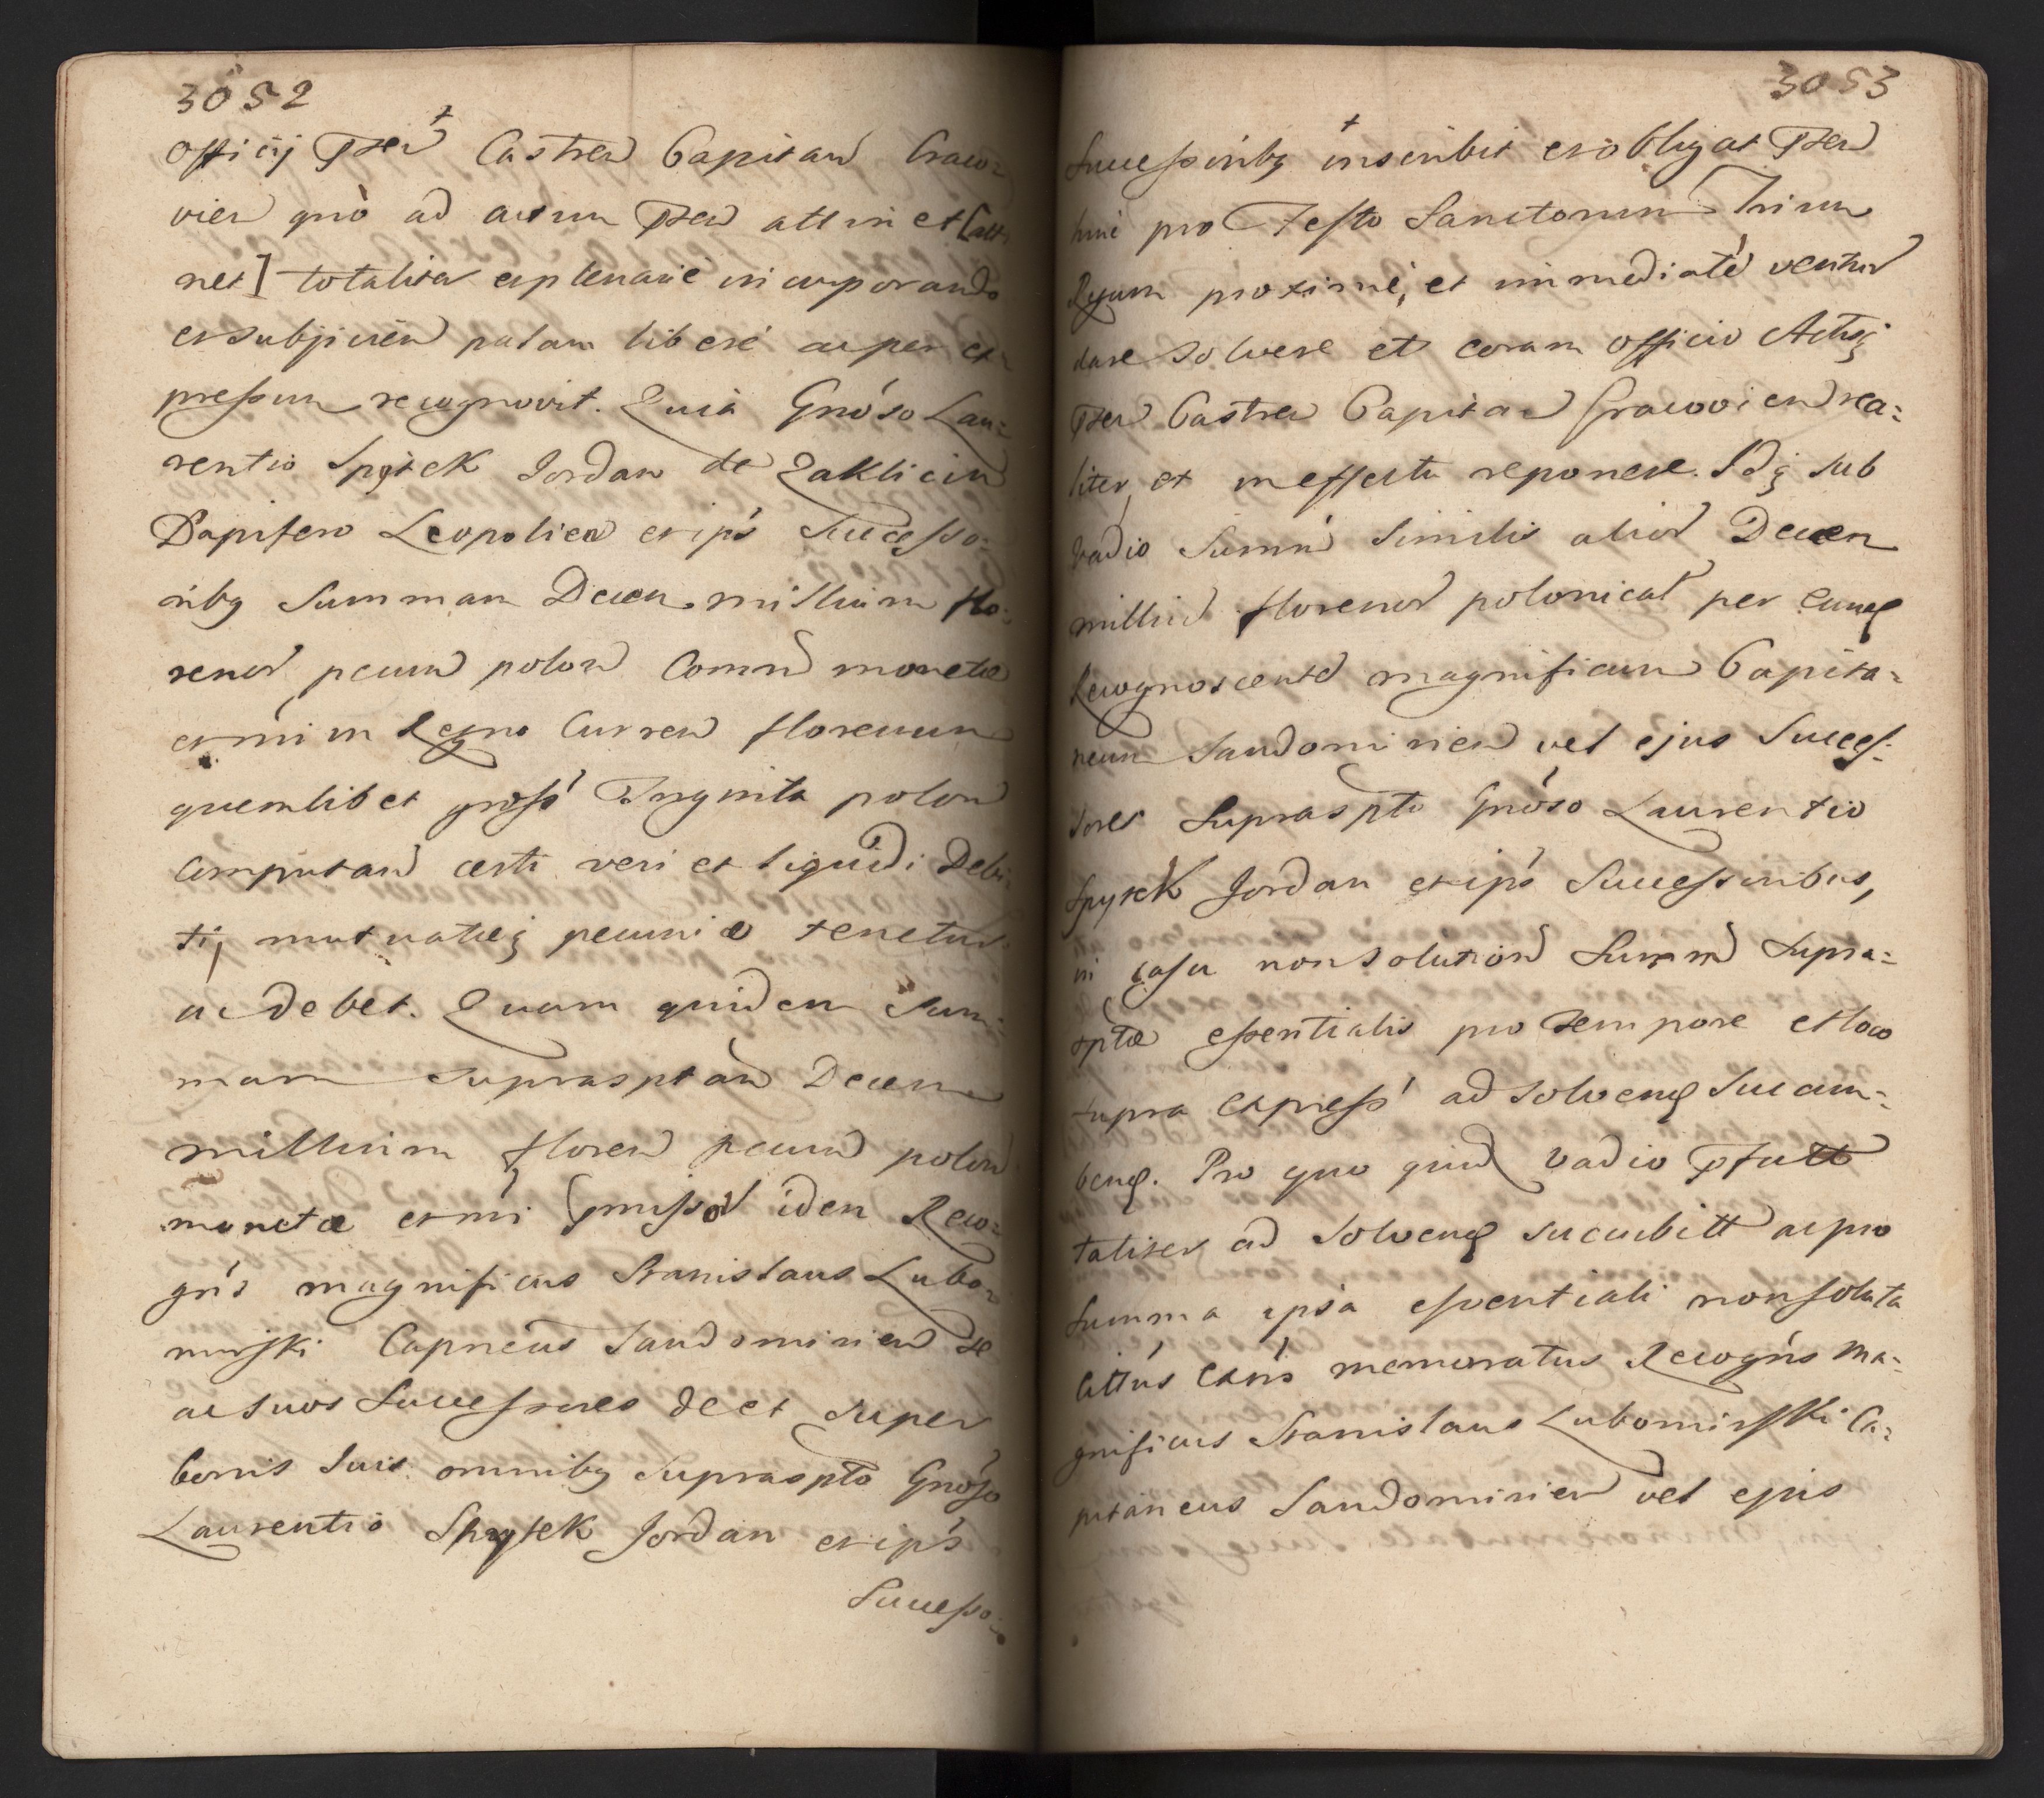 3052
officij Pñen Castren Capitan Craco-
vien quò ad actum Pñen attinet [atti
net] totaliter explenariè incorporando
et subjicien palam liberè ac per ex
pressum recognovit. Quià Gnóso Lau=
rentio Spytek Jordan de Zakliczin
Dapifero Leopolien et ips Successo=
ribq Summam Decem millium flo=
renor pecun polon Comun monetæ
et nri in Regno Curren florenum
quemlibet gross Triginta polon
Computand certi veri et liquidi Debi
ti, mutuatæq pecuniæ tenetur
ac debet. Quam quidem Sum=
mam suprasptam Decem
millium floren pecun polon
monetæ et nri præmissor idem Reco=
gns magnificus Stanislaus Lubo=
mirski Capneus Sandomirien se
ac suos Successores de et super
bonis suis omnibq supraspto Gnóso
Laurentio Spytek Jordan et ips
Successo=
3053
Successoribq inscribit et obligat Pñen
hinc pro Festo Sanctorum Trium
Regum proximè, et immediatè ventur
dare solvere et coram officio Actisq
Pñen Castren Capitan Cracovien rea=
liter et in effectu reponere. Idq sub
vadio Summ Similis alior Decem
milliu florenor polonical per eund
Recognoscente magnificum Capita=
neum Sandomirien vel ejus Succes=
sores Supraspto Gnóso Laurentio
Spytek Jordan et ips Successoribus,
in casu non solution Summ supra=
sptæ essentialis pro tempore et loco
supra express ad solvend Succum=
bend. Pro quo quid vadio Pfatt
taliter ad solvend succubitt ac pro
summa ipsa essentiali non soluta
littus extñs memoratus Recogns Ma=
gnificus Stanislaus Lubomirsski Ca=
pitaneus Sandomirien vel ejus